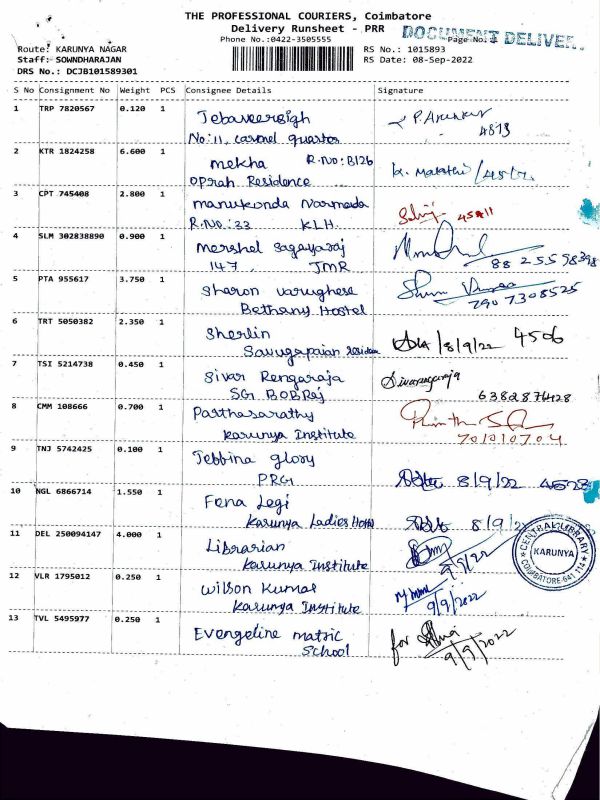 THE PROFESSIONAL COURIERS, Coimbatore
Delivery Runsheet - PRR
DOCUMENT DELIVER
Phone No.:0422-3505555
Page No.:
Route: KARUNYA NAGAR
RS No.: 1015893
Staff: SOWNDHARAJAN
RS Date: 08-Sep-2022
DRS No.: DCJB101589301
S No Consignment No Weight PCS Consignee Details Signature
1 TRP 7820567 0.120 1 Jebaveersigh P. Arunkumar
No:11, caronel quartos 4813
2 KTR 1824258 6.600 1 mekha R.No:B126
oprah Residence
3 CPT 745408 2.800 1 manukonda Narmada
R.No.:33 KLH. 45811
4 SLM 302838890 0.900 1 mershel Sagayaraj
147, JMR 8825598398
5 PTA 955617 3.750 1 sharon varughese
Bethany Hostel 7907308525
6 TRT 5050382 2.350 1 Sherlin 8/9/22 4506
7 TSI 5214738 0.450 1 Sivar Rengaraja Sivarangaraja
SGI BOBRaj 6382876428
8 CMM 108666 0.700 1 Parthasarathy
Karunya Institute 701010704
9 TNJ 5742425 0.100 1 Jebbina glory
PRG 8/9/22 4523
10 NGL 6866714 1.550 1 Fena Jegi
Karunya Ladies Hostel 8/9/22
11 DEL 250094147 4.000 1 Librarian
Karunya Institute 9/9/22
CENTRAL LIBRARY
KARUNYA
COIMBATORE-641 114
12 VLR 1795012 0.250 1 Wilson Kumar
Karunya Institute 9/9/2022
13 TVL 5495977 0.250 1 Evengeline matric for
School 9/9/2022